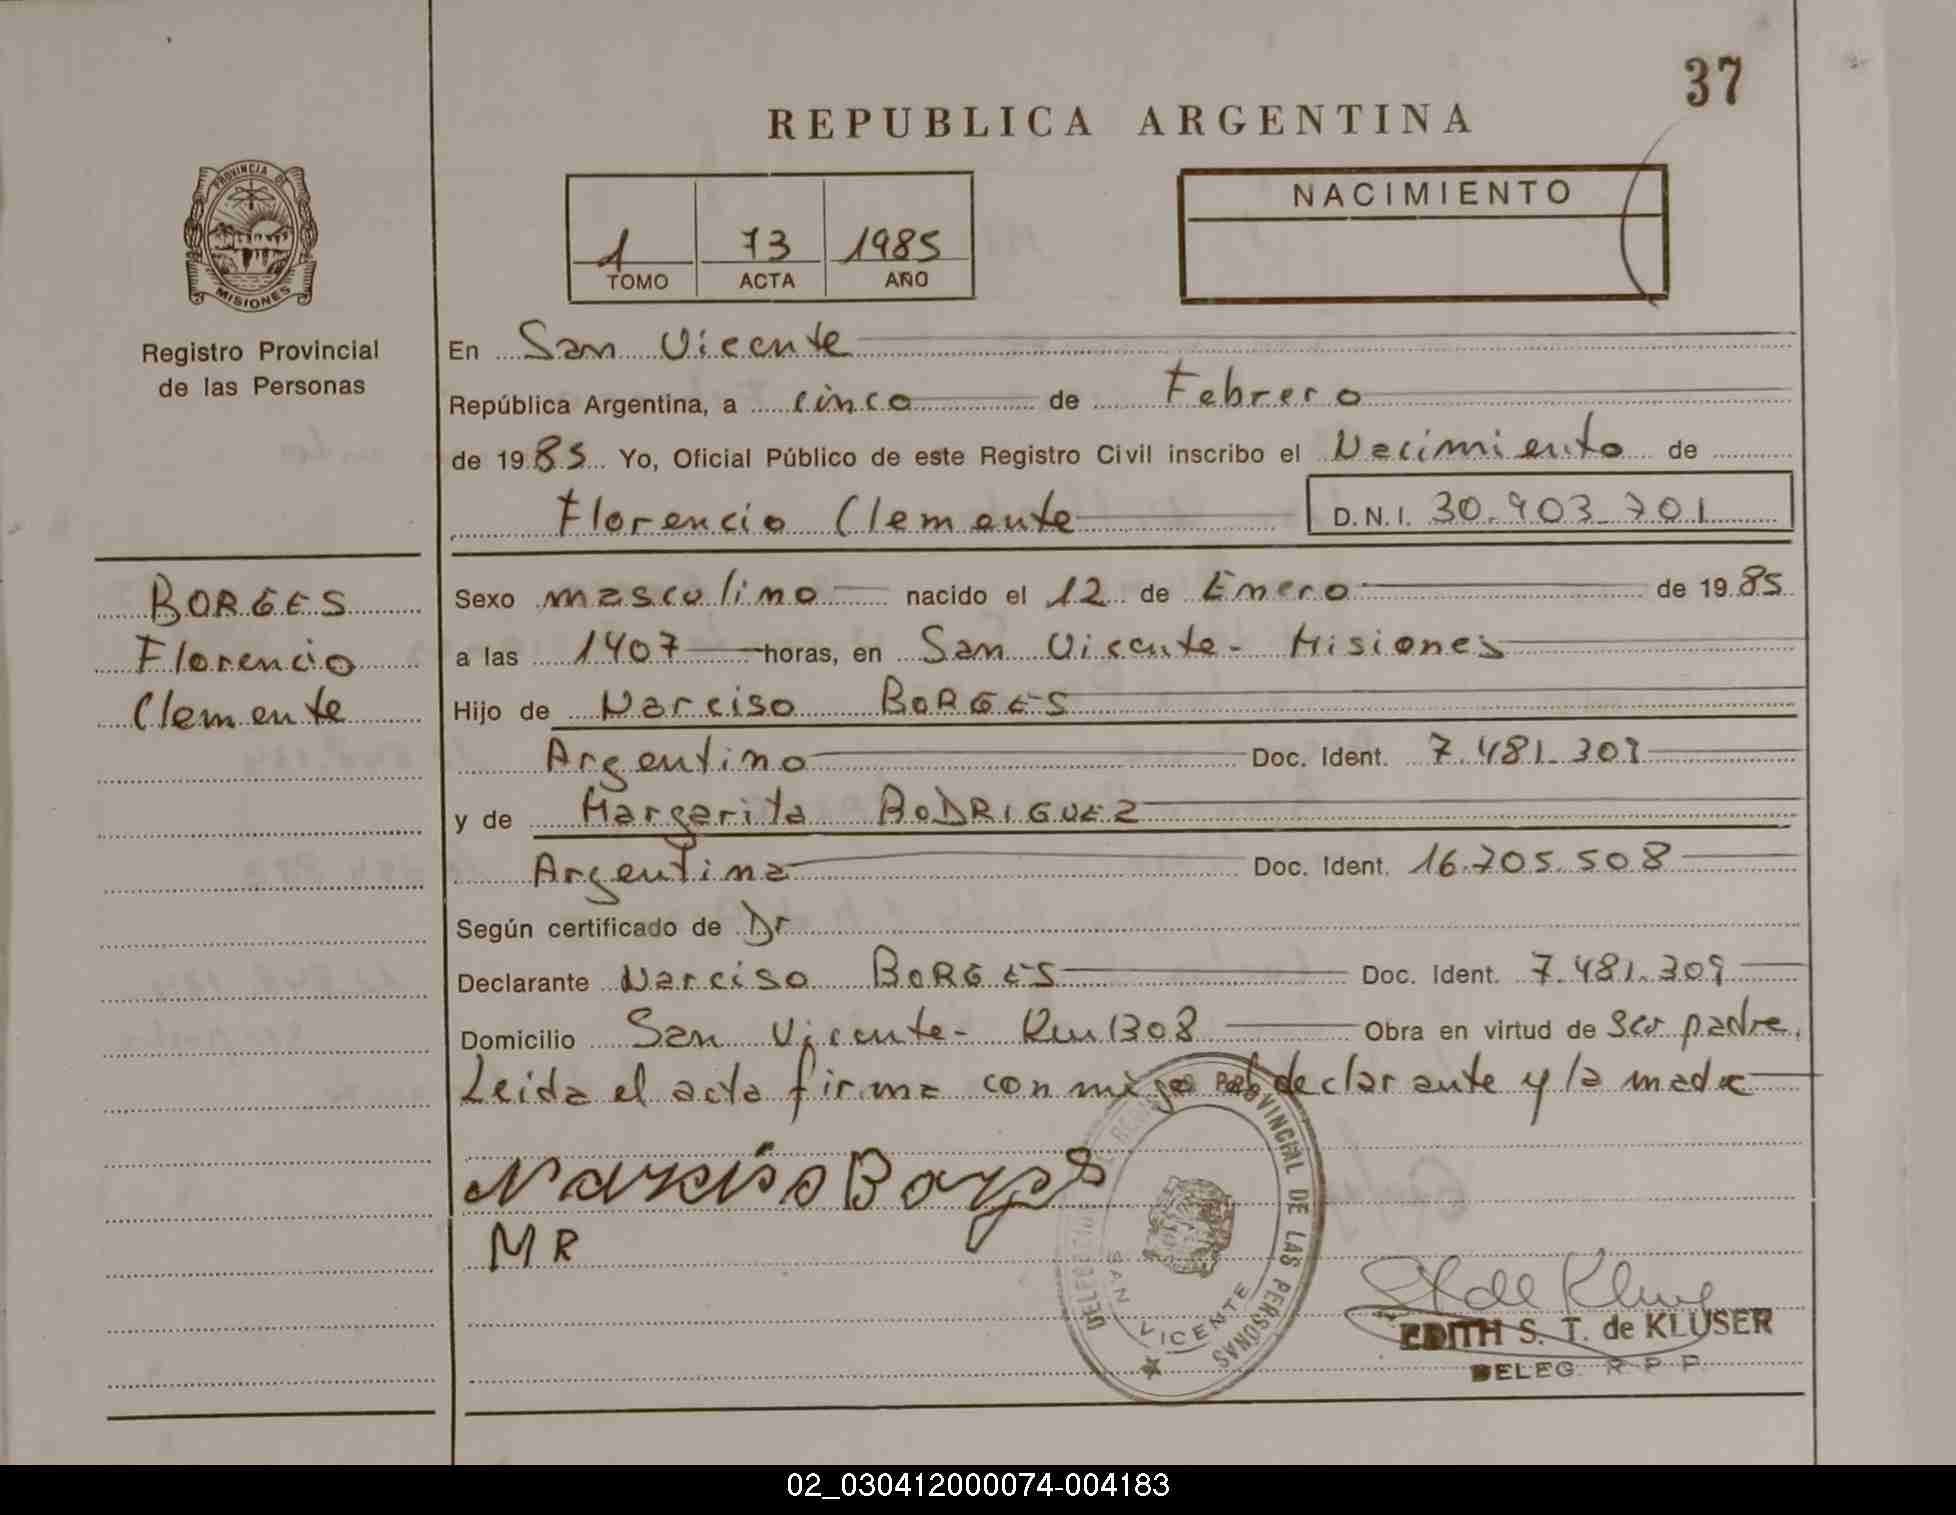 37
REPUBLICA ARGENTINA
NACIMIENTO
1 73 1985
TOMO ACTA AÑO
PROVINCIA DE
MISIONES
Registro Provincial
de las Personas
En San Vicente
República Argentina, a cinco de Febrero
de 1985 Yo, Oficial Público de este Registro Civil inscribo el Nacimiento de
Florencio Clemente D.N.I. 30.903.701
BORGES
Florencio
Clemente
Sexo masculino nacido el 12 de Enero de 1985
a las 1407 horas, en San Vicente - Misiones
Hijo de Narciso BORGES
Argentino Doc. Ident. 7.481.309
y de Margarita RODRIGUEZ
Argentina Doc. Ident. 16.705.508
Según certificado de Dr
Declarante Narciso BORGES Doc. Ident. 7.481.309
Domicilio San Vicente - Km 1308 Obra en virtud de ser padre.
Leida el acta firma con migo el declarante y la madre
Narciso Borges
MR
PROVINCIAL DE LAS PERSONAS
SAN VICENTE
EDITH S. T. de KLUSER
DELEG. R. P. P.
02_030412000074-004183